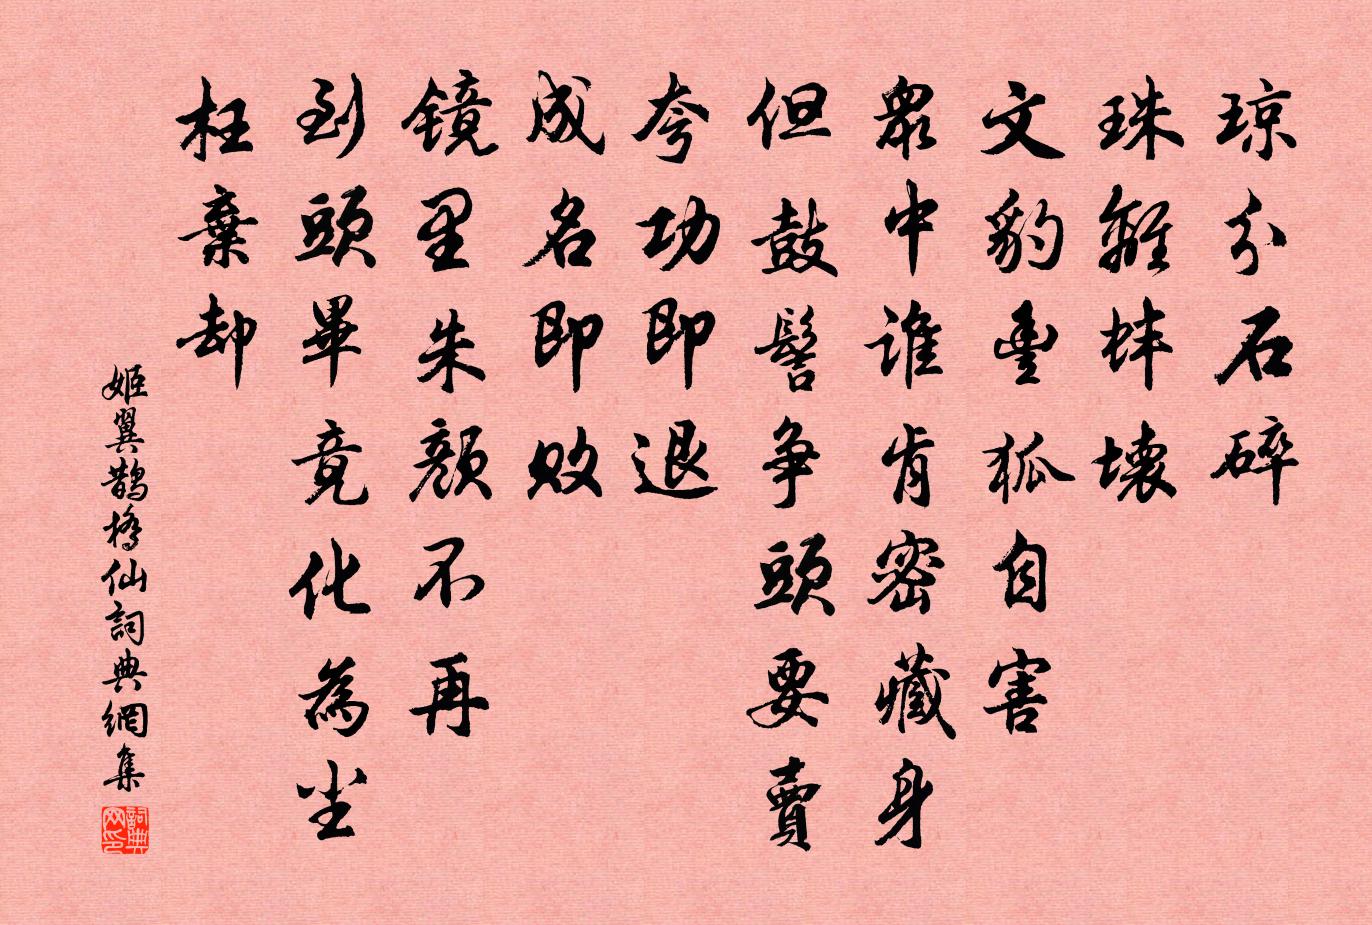 琼分石碎
珠離蚌壊
文豹豊狐自害
眾中誰肯密藏身
但鼓髻争頭要賣
夸功即退
成名即敗
镜里朱顔不再
到頭畢竟化為尘
枉棄却
姬翼鹊橋仙詞典網集
詞典网印